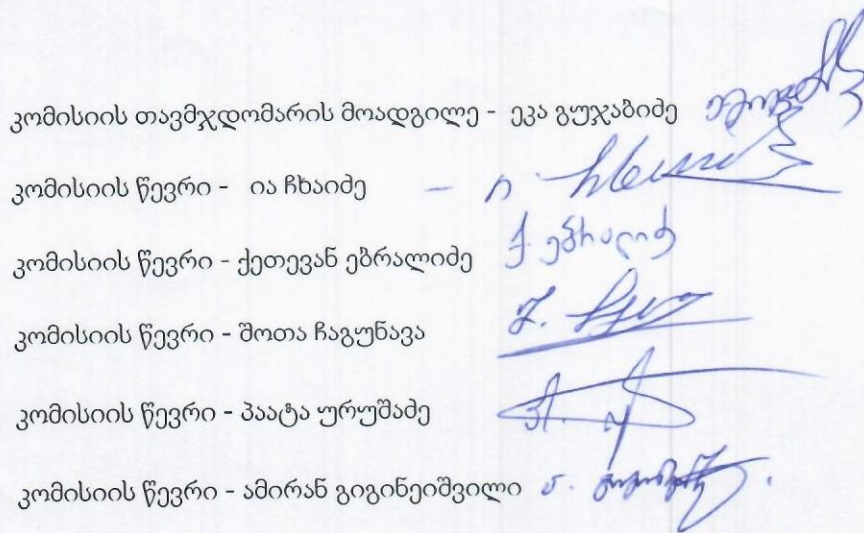 კომისიის თავმჯდომარის მოადგილე - ეკა გუჯაბიძე
კომისიის წევრი - ია ჩხაიძე
კომისიის წევრი - ქეთევან ებრალიძე ქ. ებრალიძ
კომისიის წევრი - შოთა ჩაგუნავა
კომისიის წევრი - პაატა ურუშაძე
კომისიის წევრი - ამირან გიგინეიშვილი